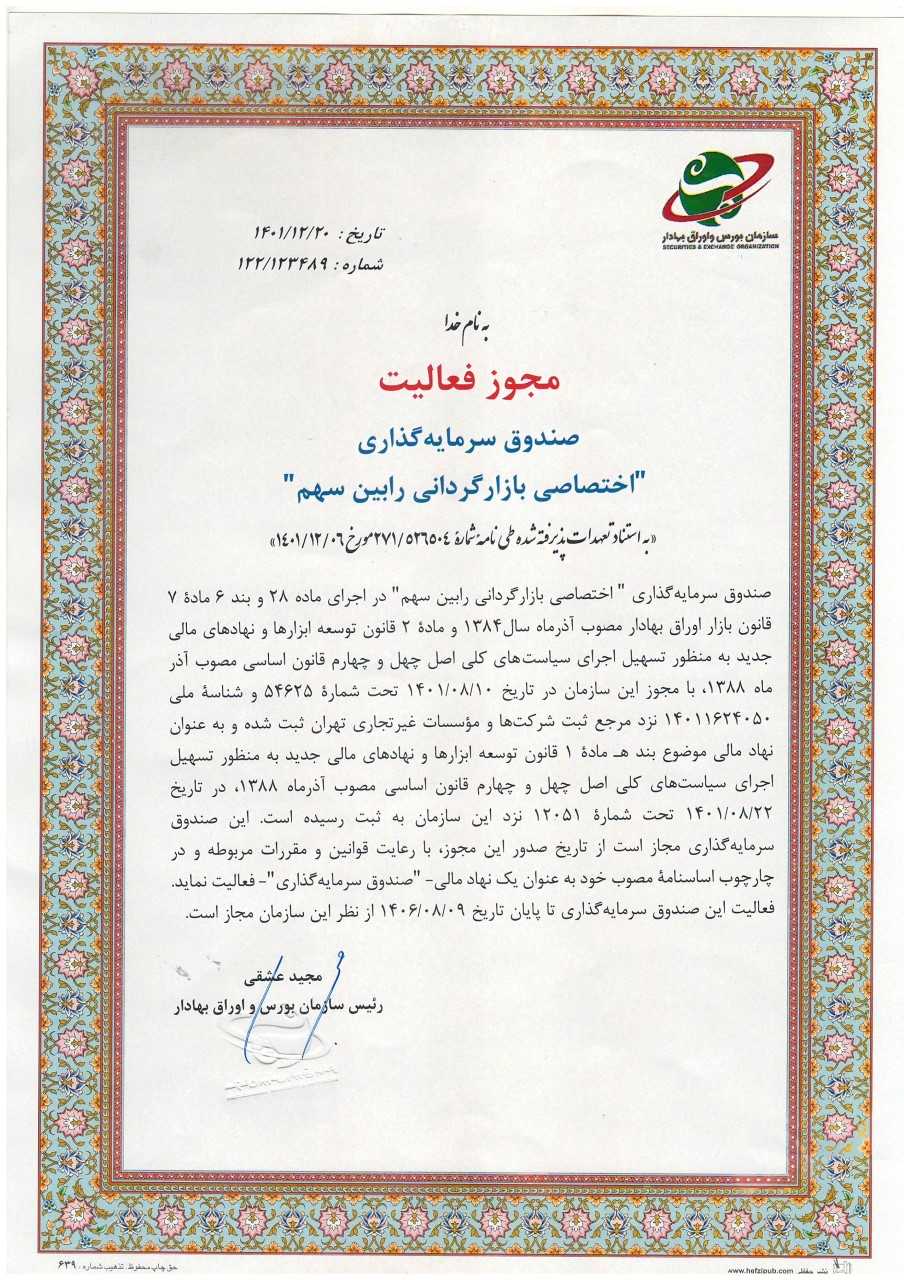 سازمان بورس و اوراق بهادار
SECURITIES & EXCHANGE ORGANIZATION
تاریخ : ۱۴۰۱/۱۲/۲۰
شماره : ۱۲۲/۱۲۳۴۸۹
به نام خدا
مجوز فعالیت
صندوق سرمایه‌گذاری
"اختصاصی بازارگردانی رابین سهم"
«به استناد تعهدات پذیرفته شده طی نامهٔ شمارهٔ ۲۷۱/۵۲۶۵۰۴ مورخ ۱۴۰۱/۱۲/۰۶»
صندوق سرمایه‌گذاری " اختصاصی بازارگردانی رابین سهم" در اجرای ماده ۲۸ و بند ۶ مادهٔ ۷
قانون بازار اوراق بهادار مصوب آذرماه سال۱۳۸۴ و مادهٔ ۲ قانون توسعه ابزارها و نهادهای مالی
جدید به منظور تسهیل اجرای سیاست‌های کلی اصل چهل و چهارم قانون اساسی مصوب آذر
ماه ۱۳۸۸، با مجوز این سازمان در تاریخ ۱۴۰۱/۰۸/۱۰ تحت شمارهٔ ۵۴۶۲۵ و شناسهٔ ملی
۱۴۰۱۱۶۲۴۰۵۰ نزد مرجع ثبت شرکت‌ها و مؤسسات غیرتجاری تهران ثبت شده و به عنوان
نهاد مالی موضوع بند هـ مادهٔ ۱ قانون توسعه ابزارها و نهادهای مالی جدید به منظور تسهیل
اجرای سیاست‌های کلی اصل چهل و چهارم قانون اساسی مصوب آذرماه ۱۳۸۸، در تاریخ
۱۴۰۱/۰۸/۲۲ تحت شمارهٔ ۱۲۰۵۱ نزد این سازمان به ثبت رسیده است. این صندوق
سرمایه‌گذاری مجاز است از تاریخ صدور این مجوز، با رعایت قوانین و مقررات مربوطه و در
چارچوب اساسنامهٔ مصوب خود به عنوان یک نهاد مالی- "صندوق سرمایه‌گذاری"- فعالیت نماید.
فعالیت این صندوق سرمایه‌گذاری تا پایان تاریخ ۱۴۰۶/۰۸/۰۹ از نظر این سازمان مجاز است.
مجید عشقی
رئیس سازمان بورس و اوراق بهادار
نشر حفظی www.hefzipub.com
حق چاپ محفوظ. تذهیب شماره : ۶۳۹